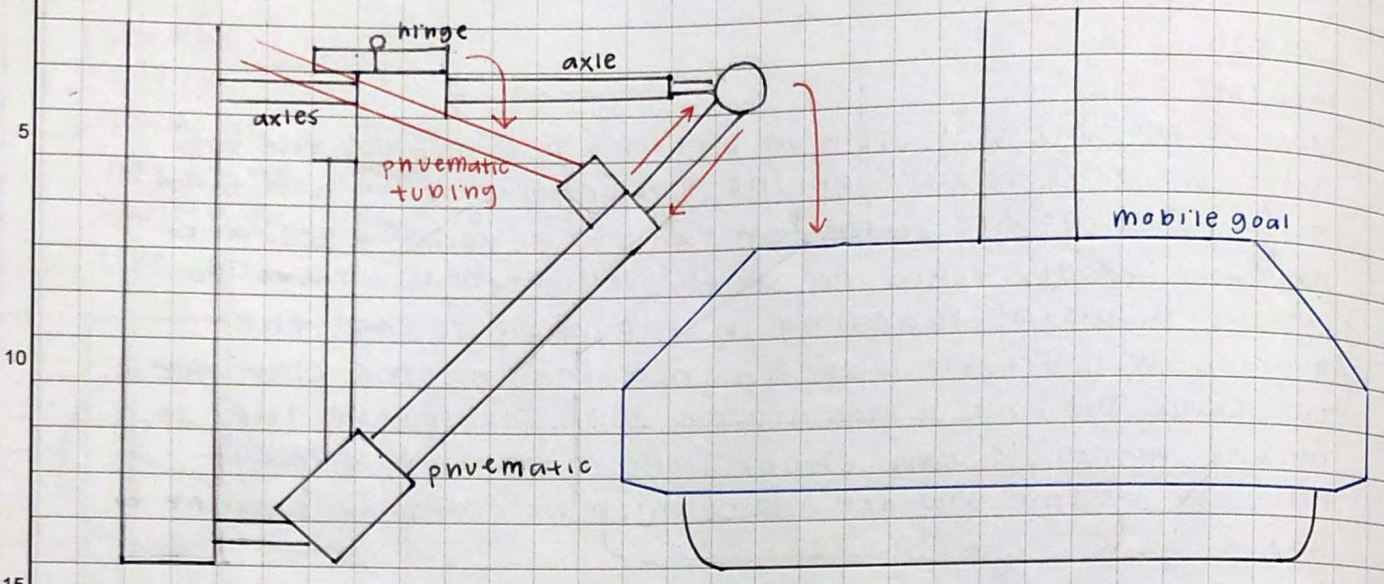 hinge
axle
axles
5
pnvematic
tubing
mobile goal
10
pnvematic
15